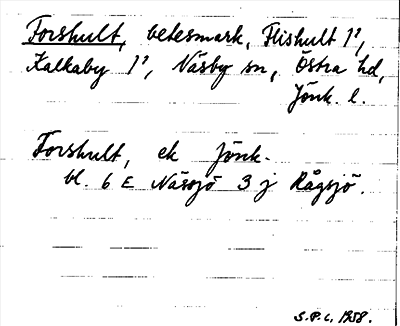 Forshult, betesmark, Flishult 1²,
Kalkaby 1², Näsby sn, Östra hd,
Jönk. l.
Forshult, ek Jönk.
bl. 6 E Nässjö 3 j Rågsjö.
S.P.C. 1958.